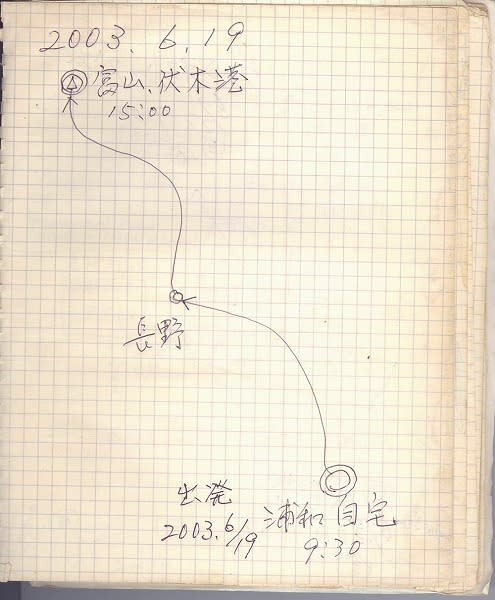 2003.6.19
富山、伏木港
15:00
長野
出発
2003.6/19
浦和自宅
9:30